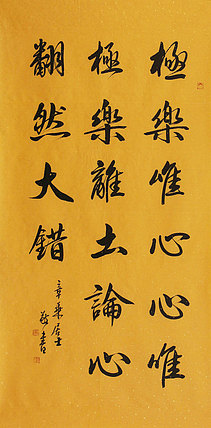 極樂唯心心唯
極樂離土論心
翻然大錯
章乘居士
敬書